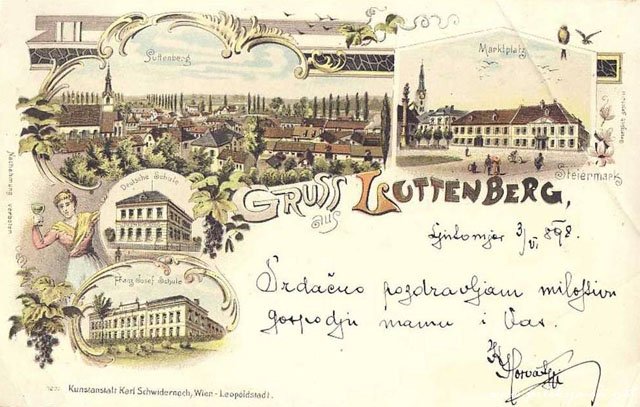 Luttenberg
Marktplatz
Steiermark
Deutsche Schule
Franz Josef Schule
Nachahmung verboten
GRUSS aus LUTTENBERG,
Ljutomjer 3/VI 898.
Srdačno pozdravljam milostivu
gospodju mamu i Vas.
KHorvat
Kunstanstalt Karl Schwidernoch, Wien - Leopoldstadt.